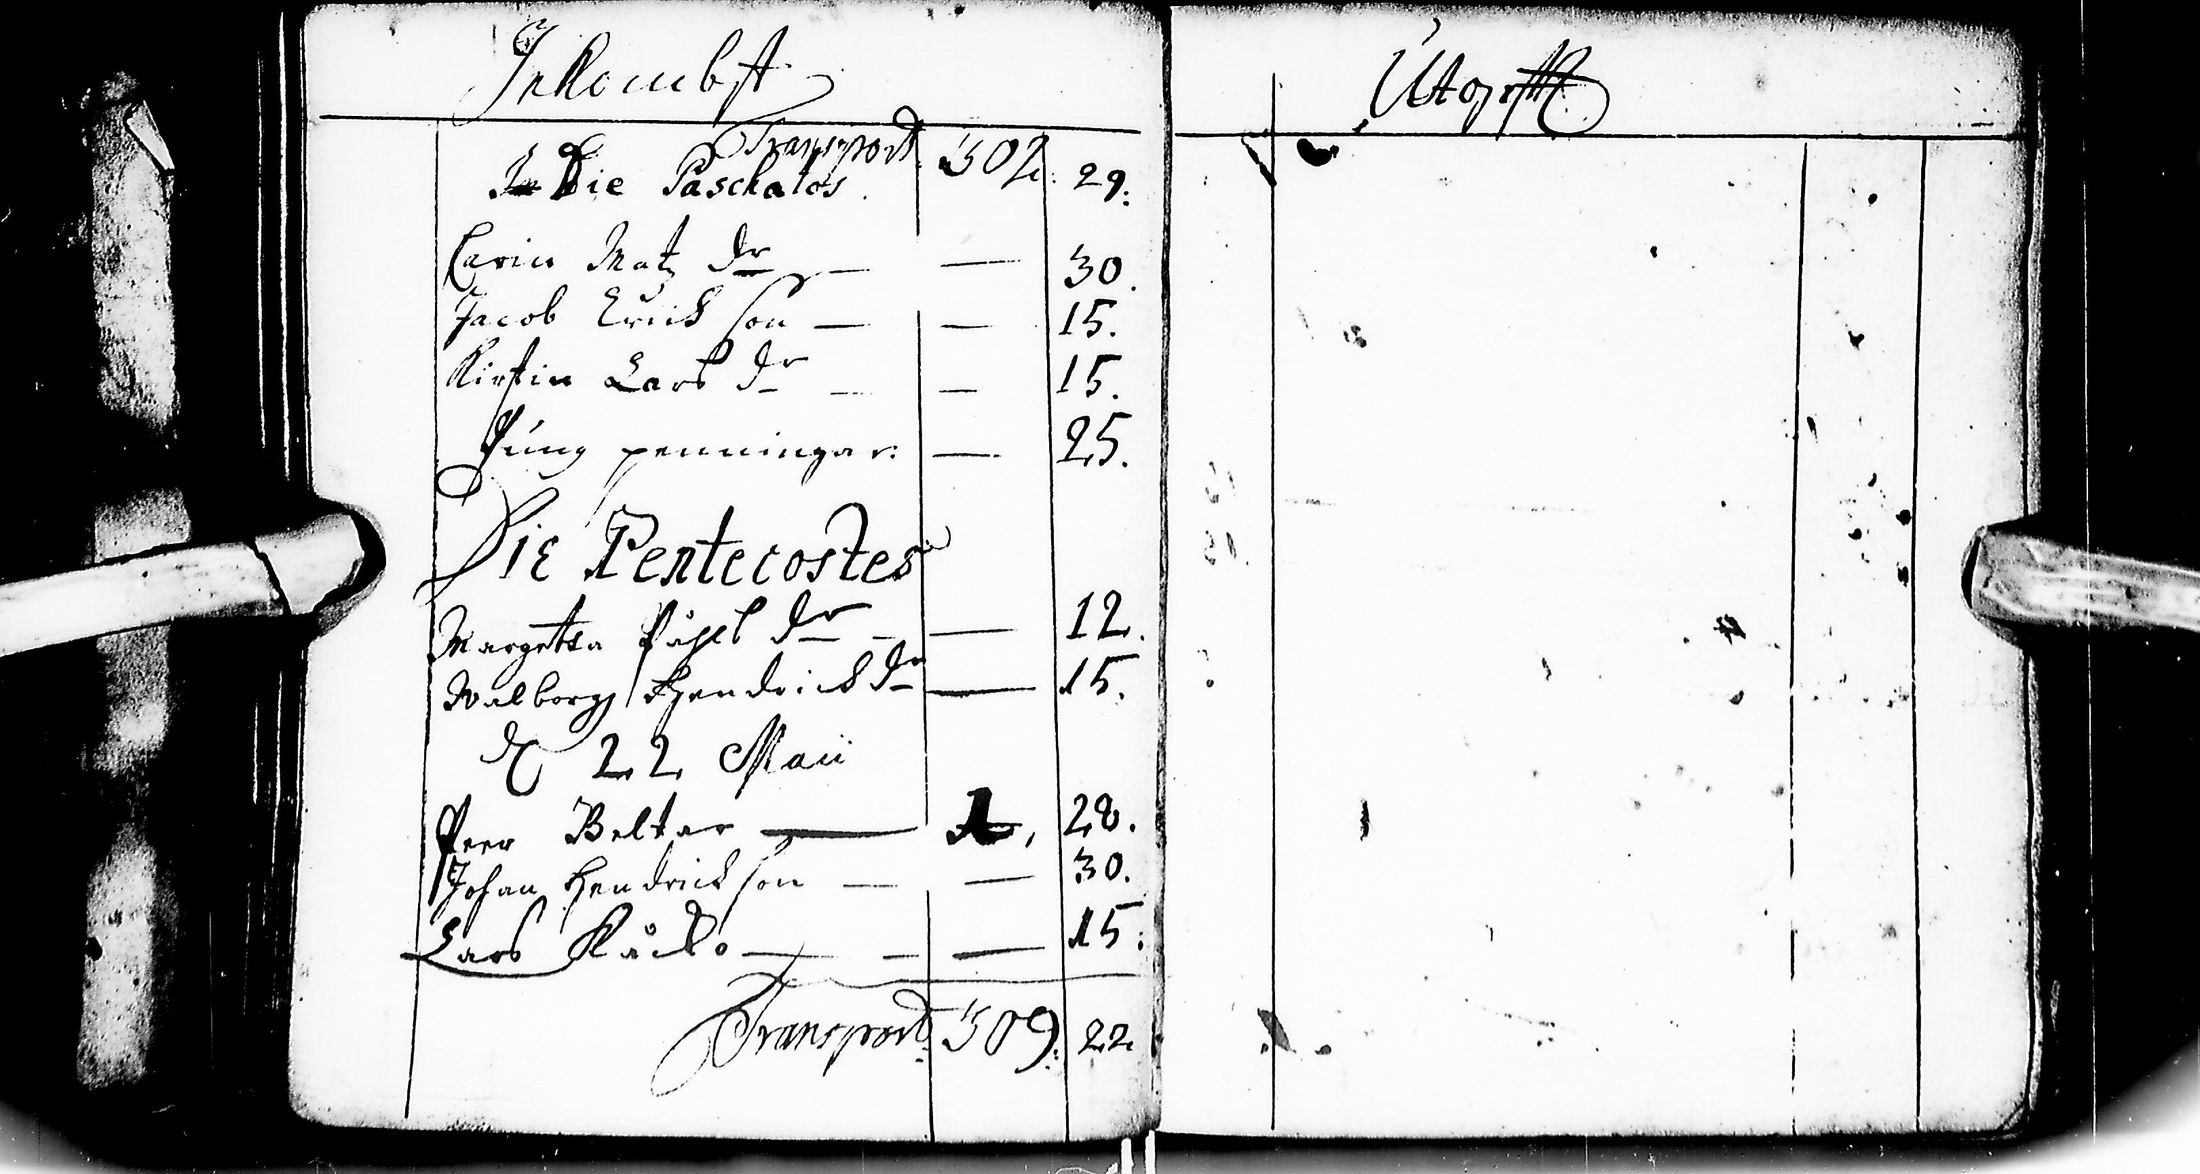 Inkombst
Transport 502. 29.
In Die Paschatos.
Carin Matz dr — — 30.
Jacob Erick son — — 15.
Kirstin Lars dr — — 15.
Pung penningar — 25.
Die Pentecostes
Margetta Påhls dr — — 12.
Walborg Hendricks dr — 15.
d 22 Maii
Peer Beltar — 1, 28.
Johan Hendrick son — — 30.
Lars — — 15.
Transport 509. 22
Utgifft